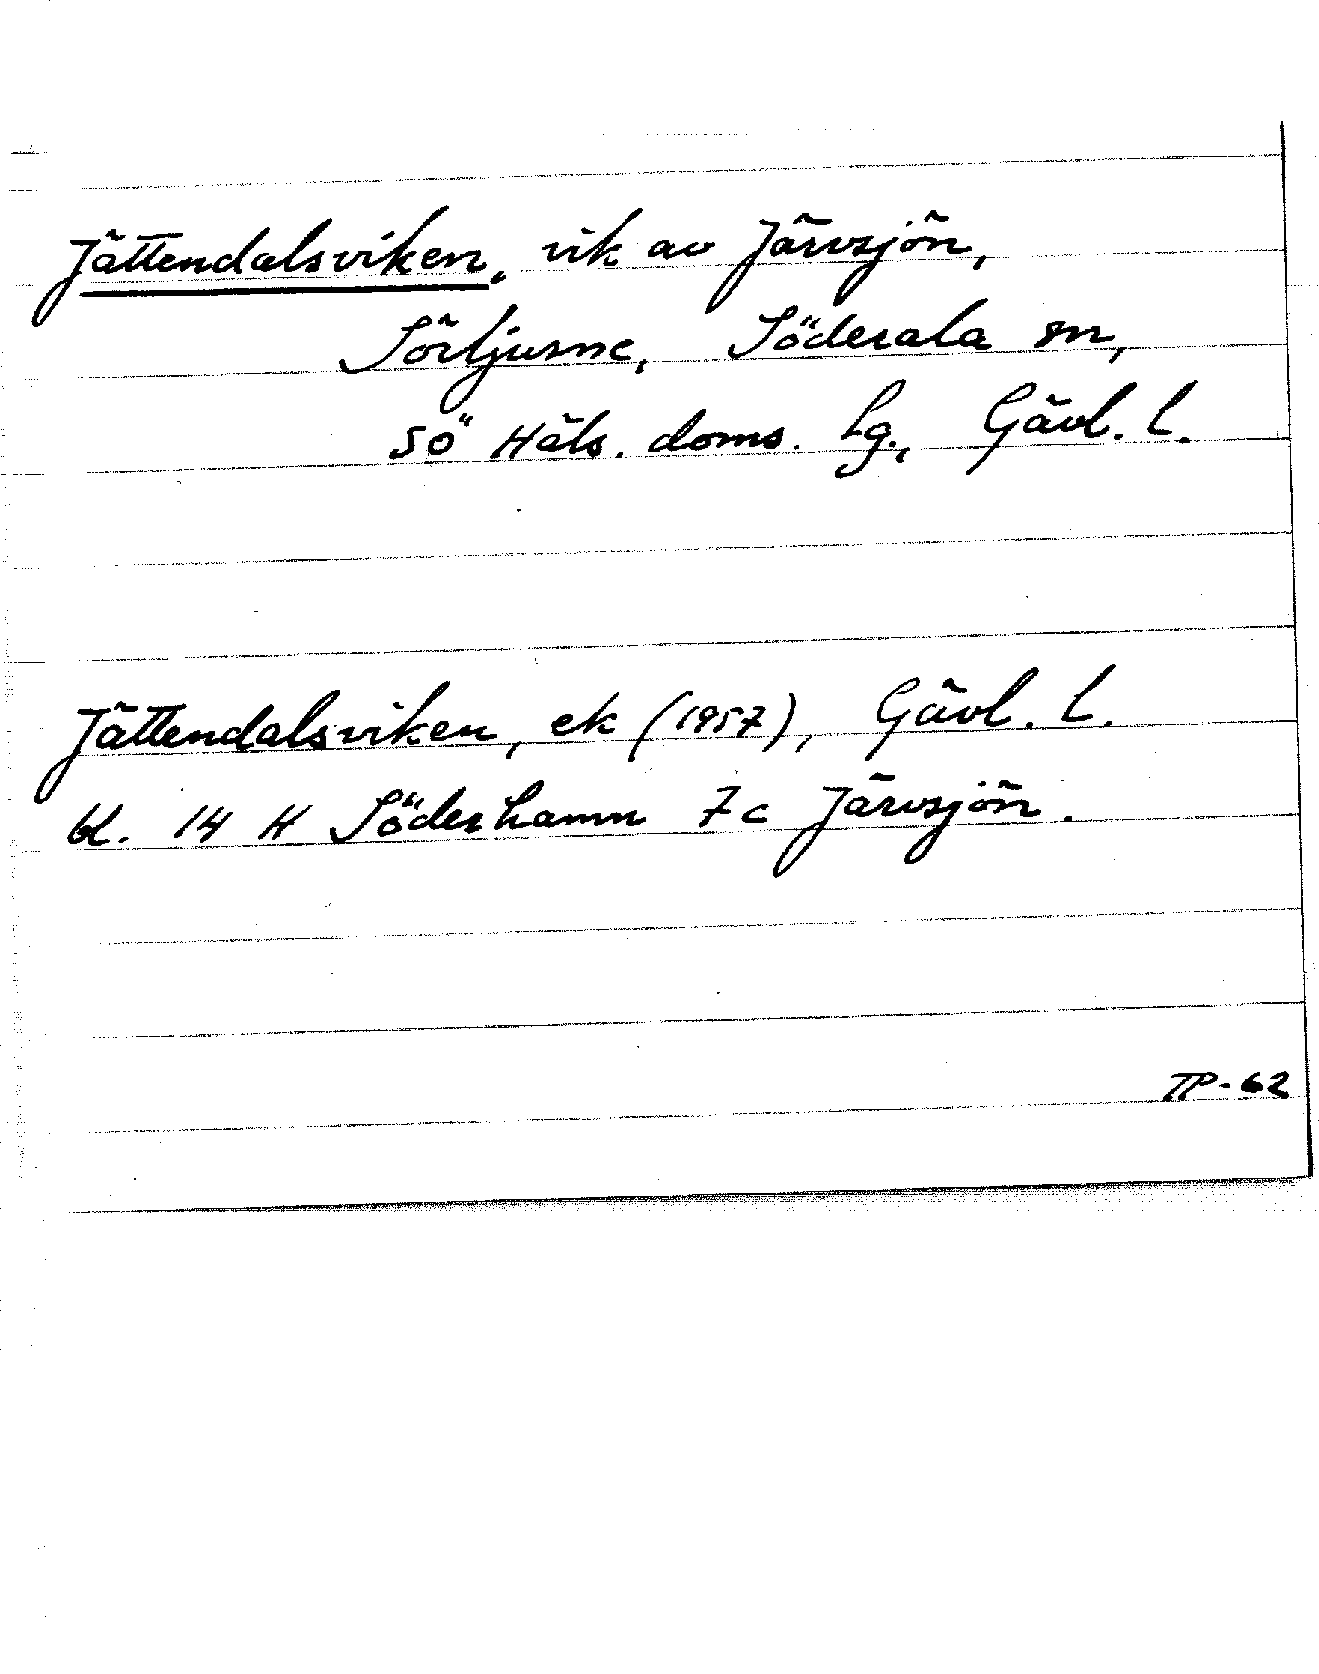 Jättendalsviken, vik av Järvsjön,
Sörljusne, Söderala sn,
SÖ Häls. doms. hg., Gävl. l.
Jättendalsviken, ek (1957), Gävl. l.
bl. 14 H Söderhamn 7c Järvsjön.
TP-62